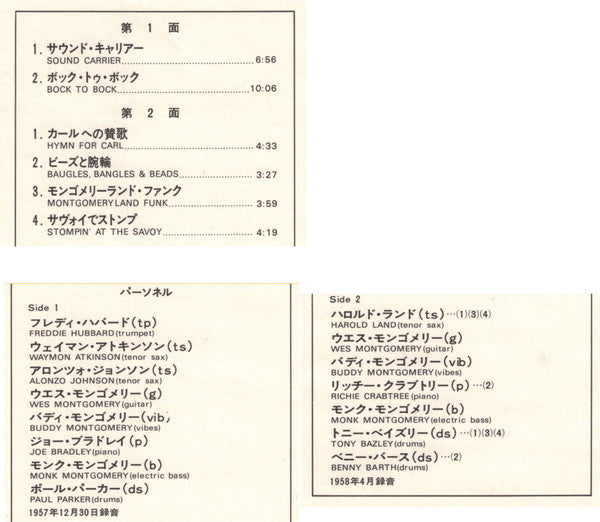 第 1 面
1. サウンド・キャリアー
SOUND CARRIER 6:56
2. ボック・トゥ・ボック
BOCK TO BOCK 10:06
第 2 面
1. カールへの賛歌
HYMN FOR CARL 4:33
2. ビーズと腕輪
BAUGLES, BANGLES & BEADS 3:27
3. モンゴメリーランド・ファンク
MONTGOMERYLAND FUNK 3:59
4. サヴォイでストンプ
STOMPIN' AT THE SAVOY 4:19
パーソネル
Side 1
フレディ・ハバード(tp)
FREDDIE HUBBARD(trumpet)
ウェイマン・アトキンソン(ts)
WAYMON ATKINSON(tenor sax)
アロンツォ・ジョンソン(ts)
ALONZO JOHNSON(tenor sax)
ウエス・モンゴメリー(g)
WES MONTGOMERY(guitar)
バディ・モンゴメリー(vib)
BUDDY MONTGOMERY(vibes)
ジョー・ブラドレイ(p)
JOE BRADLEY(piano)
モンク・モンゴメリー(b)
MONK MONTGOMERY(electric bass)
ポール・パーカー(ds)
PAUL PARKER(drums)
1957年12月30日録音
Side 2
ハロルド・ランド(ts)…(1)(3)(4)
HAROLD LAND(tenor sax)
ウエス・モンゴメリー(g)
WES MONTGOMERY(guitar)
バディ・モンゴメリー(vib)
BUDDY MONTGOMERY(vibes)
リッチー・クラブトリー(p)…(2)
RICHIE CRABTREE(piano)
モンク・モンゴメリー(b)
MONK MONTGOMERY(electric bass)
トニー・ベイズリー(ds)…(1)(3)(4)
TONY BAZLEY(drums)
ベニー・バース(ds)…(2)
BENNY BARTH(drums)
1958年4月録音